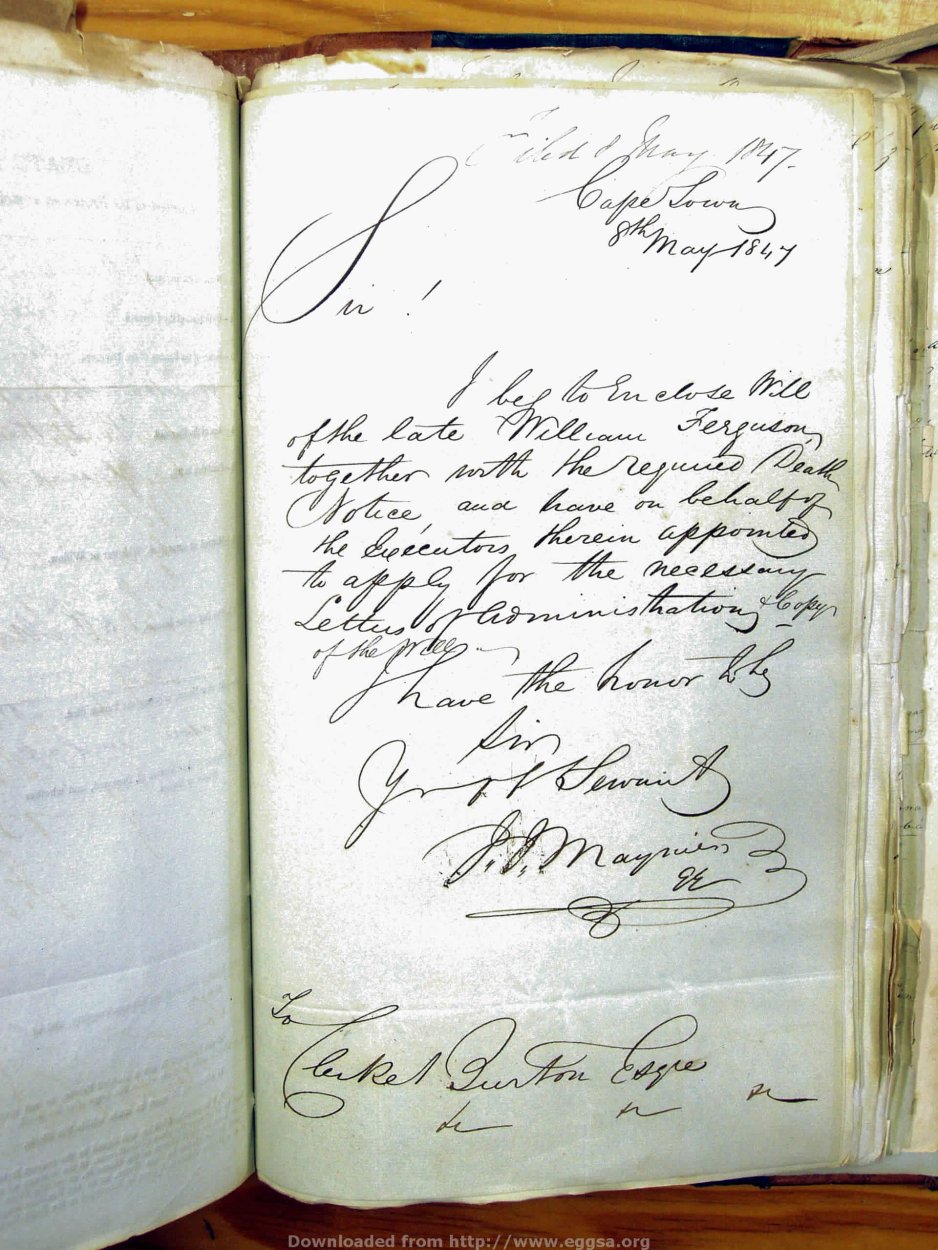 Filed 8 May 1847.
Cape Town
8th May 1847
Sir !
I beg to Enclose Will
of the late William Ferguson,
together with the required Death
Notice, and have on behalf of
the Executors therein appointed
to apply for the necessary
Letters of Administration & Copy
of the Will
I have the honor to be
Sir
Yr Servant
J. J. Maynier
To
Clerke Burton Esqre
Downloaded from http://www.eggsa.org